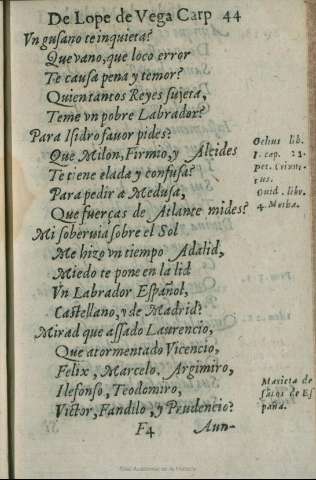 De Lope de Vega Carp 44
Vn gusano te inquieta?
Que vano, que loco error
Te causa pena y temor?
Quien tantos Reyes sujeta,
Teme vn pobre Labrador?
Para Isidro fauor pides?
Que Milon, Firmio, y Alcides
Te tiene elada y confusa?
Para pedir a Medusa,
Que fuerças de Atlante mides?
Mi soberuia sobre el Sol
Me hizo vn tiempo Adalid,
Miedo te pone en la lid
Vn Labrador Español,
Castellano, y de Madrid?
Mirad que assado Laurencio,
Que atormentado Vicencio,
Felix, Marcelo, Argimiro,
Ilefonso, Teodomiro,
Victor, Fandilo, y Prudencio?
F4 Aun-
Gelius lib.
cap.
Pet. Crini-
tus.
Ouid. libr.
4. Metha.
Marieta de
santos de Es
paña.
Real Academia de la Historia